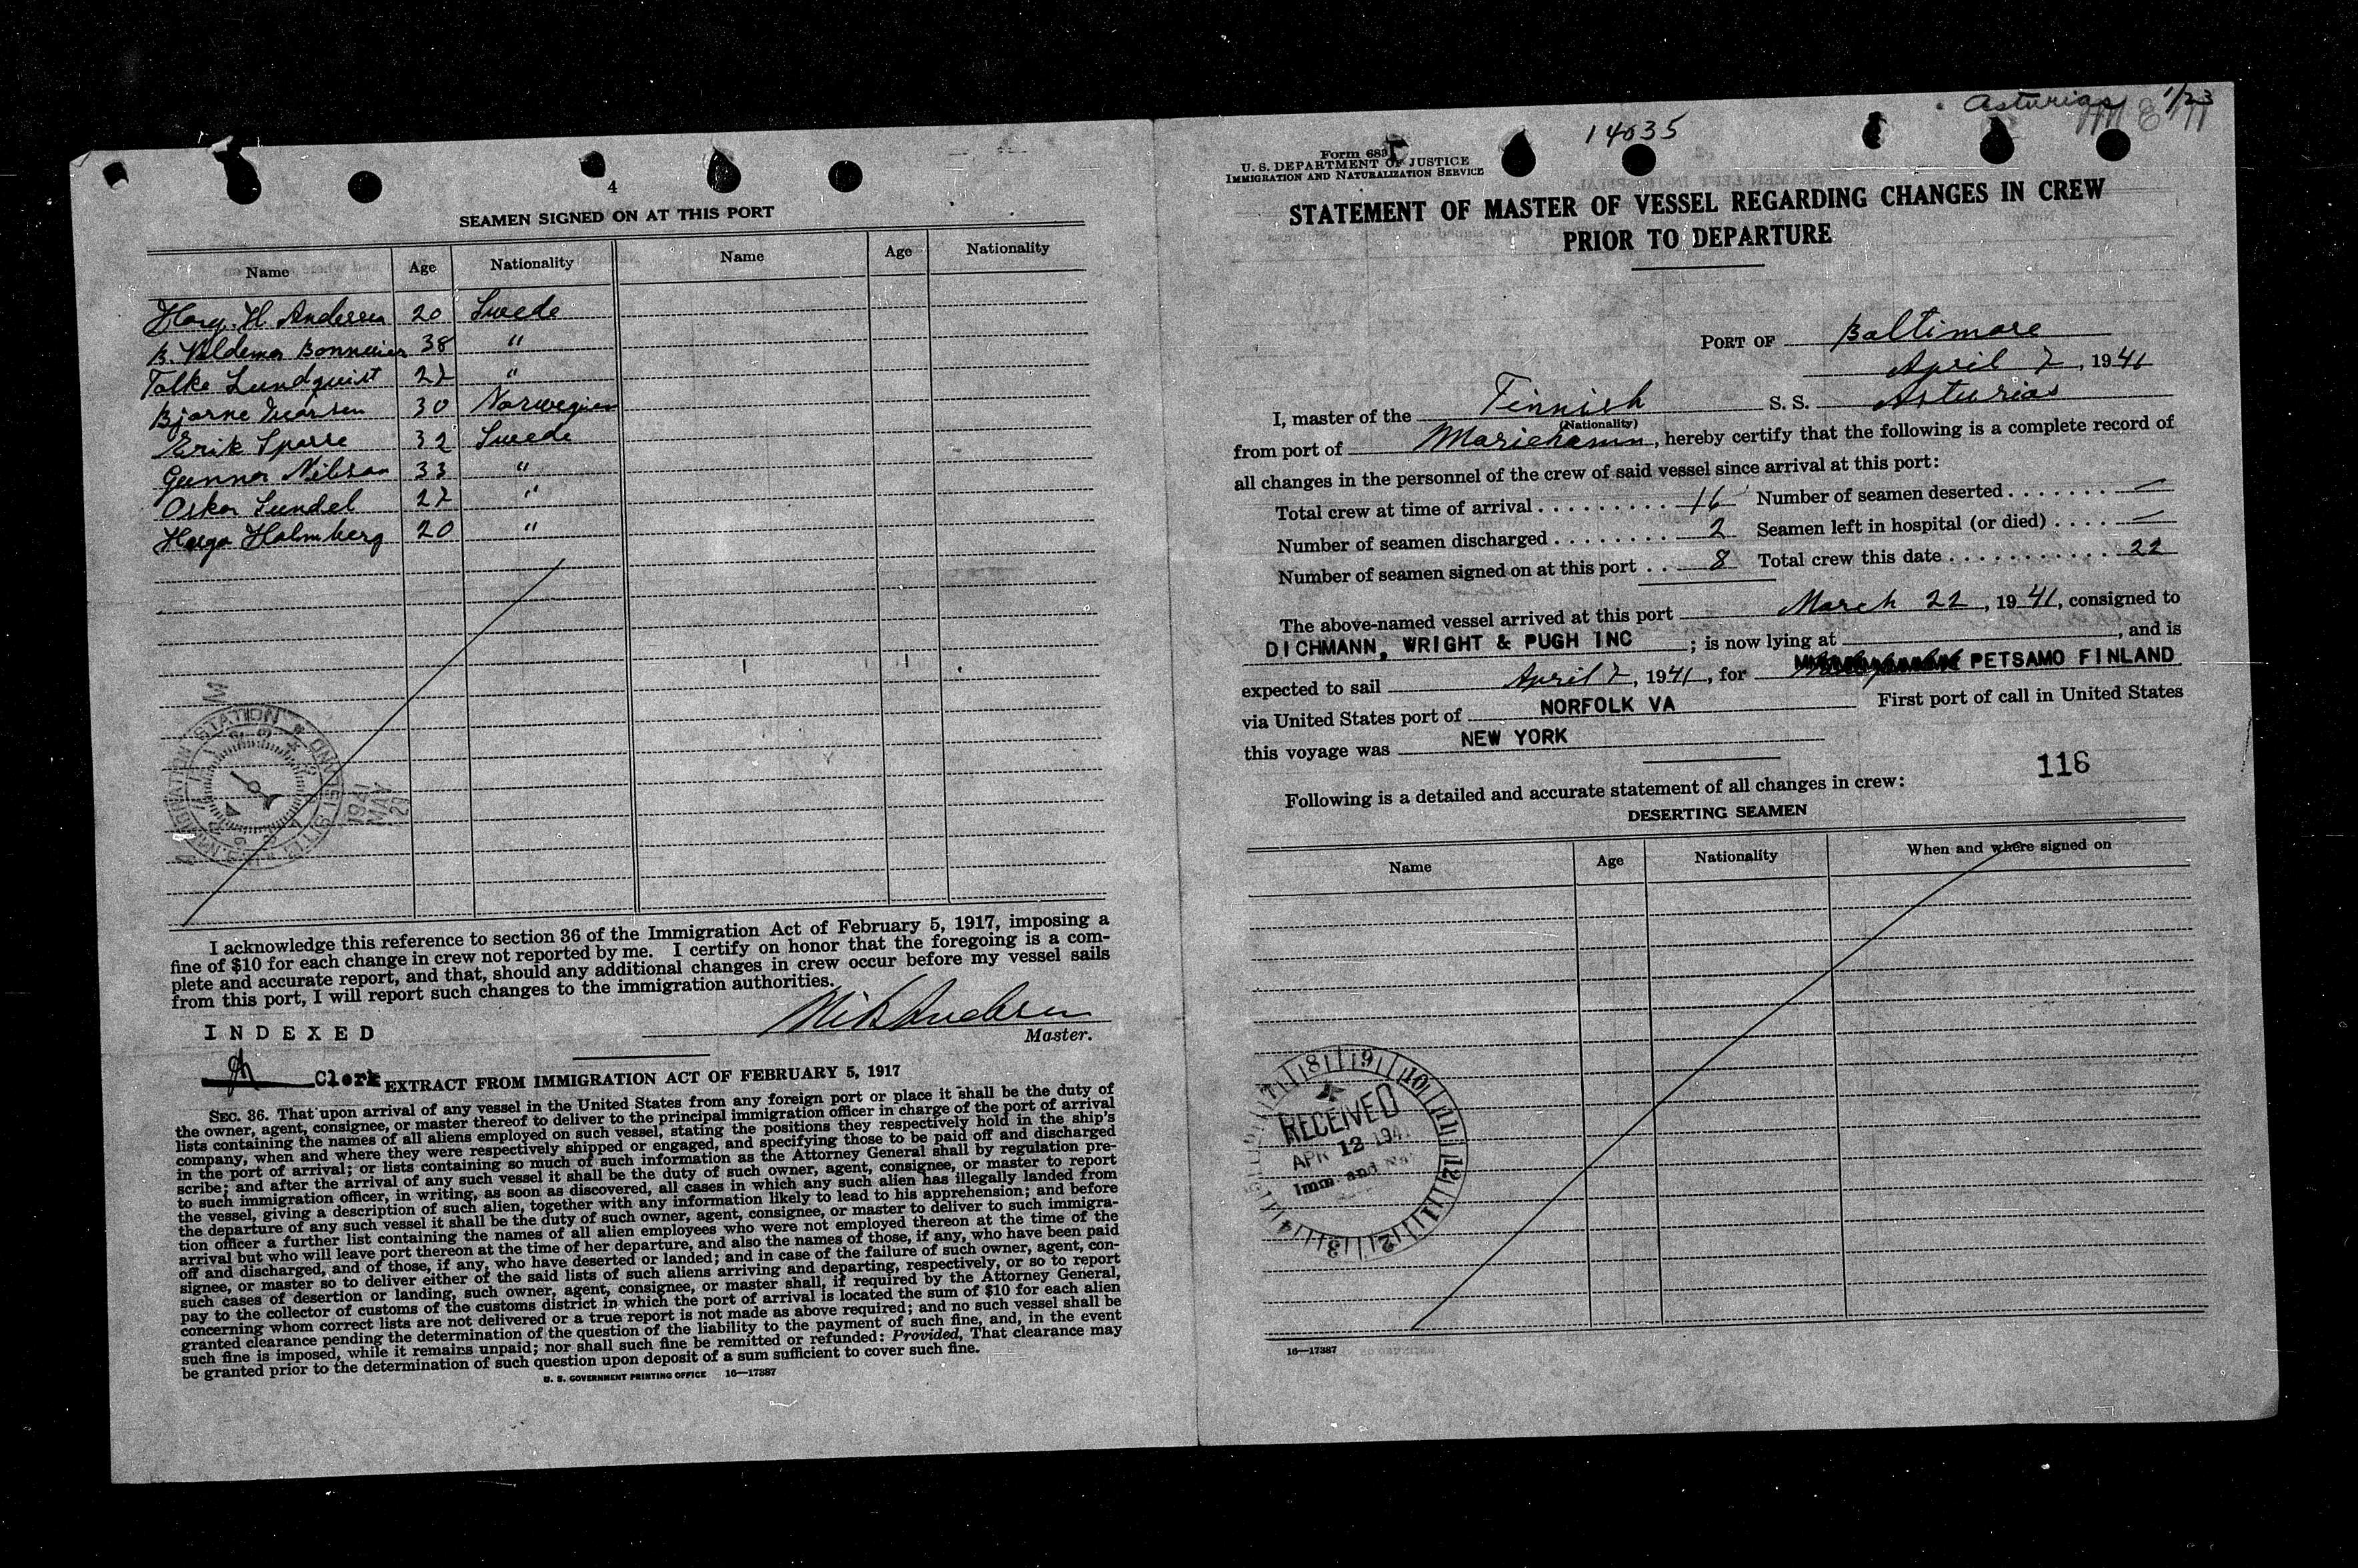 4
SEAMEN SIGNED ON AT THIS PORT
Name Age Nationality Name Age Nationality
H. Andersen 20 Swede
B. Valdemar 38 "
Lundquist 22 "
Bjarne 30 Norwegian
Erik Sparre 32 Swede
Gunnar Nilsson 33 "
Oskar Sundel 22 "
Holmberg 20 "
IMMIGRATION STATION
1941
MAY
29
I acknowledge this reference to section 36 of the Immigration Act of February 5, 1917, imposing a
fine of $10 for each change in crew not reported by me. I certify on honor that the foregoing is a com-
plete and accurate report, and that, should any additional changes in crew occur before my vessel sails
from this port, I will report such changes to the immigration authorities.
INDEXED
Master.
Clerk
EXTRACT FROM IMMIGRATION ACT OF FEBRUARY 5, 1917
SEC. 36. That upon arrival of any vessel in the United States from any foreign port or place it shall be the duty of
the owner, agent, consignee, or master thereof to deliver to the principal immigration officer in charge of the port of arrival
lists containing the names of all aliens employed on such vessel, stating the positions they respectively hold in the ship's
company, when and where they were respectively shipped or engaged, and specifying those to be paid off and discharged
in the port of arrival; or lists containing so much of such information as the Attorney General shall by regulation pre-
scribe; and after the arrival of any such vessel it shall be the duty of such owner, agent, consignee, or master to report
to such immigration officer, in writing, as soon as discovered, all cases in which any such alien has illegally landed from
the vessel, giving a description of such alien, together with any information likely to lead to his apprehension; and before
the departure of any such vessel it shall be the duty of such owner, agent, consignee, or master to deliver to such immigra-
tion officer a further list containing the names of all alien employees who were not employed thereon at the time of the
arrival but who will leave port thereon at the time of her departure, and also the names of those, if any, who have been paid
off and discharged, and of those, if any, who have deserted or landed; and in case of the failure of such owner, agent, con-
signee, or master so to deliver either of the said lists of such aliens arriving and departing, respectively, or so to report
such cases of desertion or landing, such owner, agent, consignee, or master shall, if required by the Attorney General,
pay to the collector of customs of the customs district in which the port of arrival is located the sum of $10 for each alien
concerning whom correct lists are not delivered or a true report is not made as above required; and no such vessel shall be
granted clearance pending the determination of the question of the liability to the payment of such fine, and, in the event
such fine is imposed, while it remains unpaid; nor shall such fine be remitted or refunded: Provided, That clearance may
be granted prior to the determination of such question upon deposit of a sum sufficient to cover such fine.
U. S. GOVERNMENT PRINTING OFFICE 16—17387
Asturias 1/23
14035
Form 689
U. S. DEPARTMENT OF JUSTICE
IMMIGRATION AND NATURALIZATION SERVICE
STATEMENT OF MASTER OF VESSEL REGARDING CHANGES IN CREW
PRIOR TO DEPARTURE
PORT OF Baltimore
April 7, 1941
I, master of the Finnish S. S. Asturias
(Nationality)
from port of Mariehamn, hereby certify that the following is a complete record of
all changes in the personnel of the crew of said vessel since arrival at this port:
Total crew at time of arrival 16 Number of seamen deserted —
Number of seamen discharged 2 Seamen left in hospital (or died) —
Number of seamen signed on at this port 8 Total crew this date 22
The above-named vessel arrived at this port March 22, 1941, consigned to
DICHMANN, WRIGHT & PUGH INC ; is now lying at , and is
expected to sail April 7, 1941, for PETSAMO FINLAND
via United States port of NORFOLK VA First port of call in United States
this voyage was NEW YORK
116
Following is a detailed and accurate statement of all changes in crew:
DESERTING SEAMEN
Name Age Nationality When and where signed on
7 8 9 10 11 12 1 2 3 4
RECEIVED
APR 12 194
Imm. and
16—17387